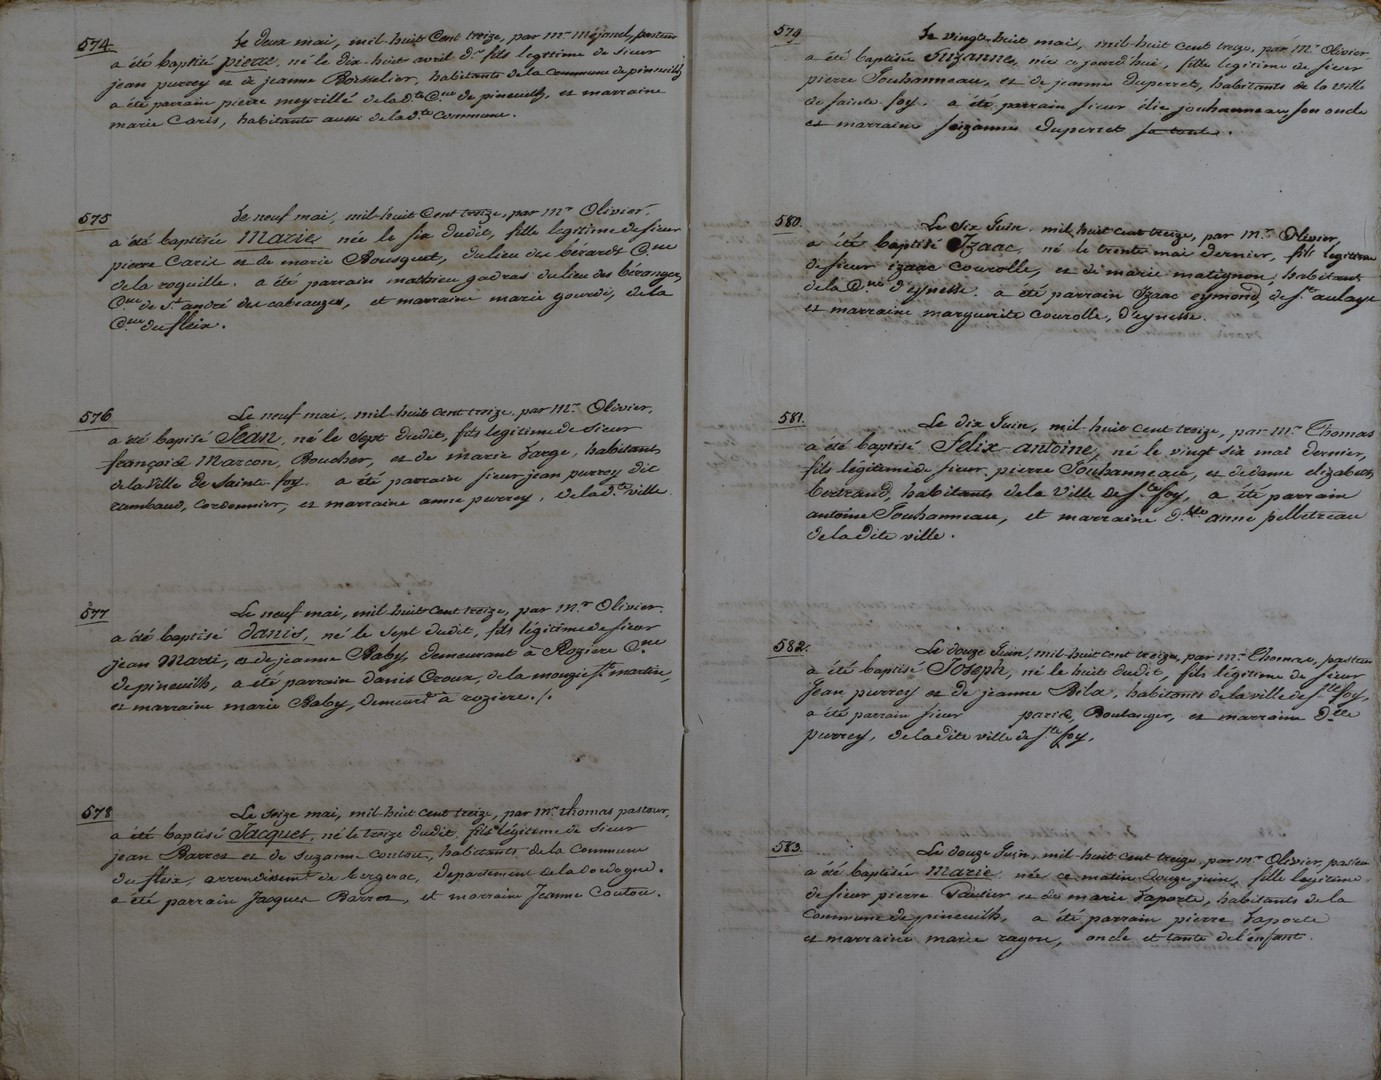 574
Le deux mai, mil-huit Cent treize, par mr. méjanel, pasteur
a été baptisé pierre, né le dix-huit avril dr. fils legitime de sieur
jean purrey et de jeanne Boisselier, habitants de la Commune de pineuilh
a été parrain pierre meyrillé de la d.te C.ne de pineuilh, et marraine
marie Caris, habitante aussi de la d.te Commune.
575
Le neuf mai, mil-huit Cent treize, par mr. Olivier,
a été baptisée Marie, née le six dudit, fille legitime de sieur
pierre Caris et de marie Rousquet, du lieu des bérards C.ne
de la roquille. a été parrain mathieu gadras du lieu des béranger,
C.ne de St. andré de cabeauzes, et marraine marie gourdi, de la
C.ne du fleix.
576
Le neuf mai, mil-huit Cent treize, par mr. Olivier,
a été baptisé Jean, né le sept dudit, fils legitime de sieur
françois Marcon, Boucher, et de marie Large, habitants
de la Ville de Sainte foy a été parrain sieur jean purrey dit
rambaud, Cordonnier, et marraine anne purrey, de la d.te ville
577
Le neuf mai, mil-huit Cent treize, par mr. Olivier.
a été baptisé danis, né le sept dudit, fils légitime de sieur
jean Marti, et de jeanne Raby, demeurant à Roziere C.ne
de pineuilh, a été parrain danis Croux, de la mongie St. martin,
et marraine marie Raby, demeurt. à roziere./.
578
Le seize mai, mil-huit Cent treize, par mr. thomas pasteur,
a été baptisé Jacques, né le treize dudit, fils légitime de sieur
jean Barres et de Suzanne Coutou, habitants de la Commune
du fleix, arrondissemt. de bergerac, departement de la Dordogne.
a été parrain Jacques Barres, et marraine Jeanne Coutou.
579
Le vingt-huit mai, mil-huit Cent treize, par Mr. Olivier
a été baptisée Suzanne, née aujourd'hui, fille legitime de sieur
pierre Jouhanneau, et de jeanne duperret, habitants de la ville
de sainte foy. a été parrain sieur élie jouhanneau, son oncle
et marraine suzanne duperret sa tante.
580.
Le Six Juin, mil huit Cent treize, par Mr. Olivier
a été baptisé Izaac, né le trente mai dernier, fils legitime
de sieur izaac Courolle, et de marie matignon, habitants
de la C.ne d'eynesse. a été parrain Izaac eymond, de St. aulaye
et marraine marguerite Courolle, d'eynesse.
581.
Le dix Juin, mil huit Cent treize, par mr. Thomas
a été baptisé Félix-antoine, né le vingt six mai dernier,
fils légitime de sieur pierre Jouhanneau, et de dame elizabeth
bertrand, habitants de la Ville de Ste. foy, a été parrain
antoine Jouhanneau, et marraine d.lle anne pelletreau
de la dite ville.
582.
Le douze Juin, mil huit Cent treize, par mr. Thomas, pasteur
a été baptisé Joseph, né le huit dudit, fils légitime de sieur
jean purrey et de jeanne Bila, habitants de la ville de Ste. foy,
a été parrain sieur parié, Boulanger, et marraine d.lle
purrey, de la dite ville de Ste. foy.
583.
Le douze Juin, mil huit Cent treize, par mr. Olivier, pasteur
a été baptisée Marie, née ce matin douze juin, fille legitime
de sieur pierre Pautier et de marie Laporte, habitants de la
Commune de pineuilh, a été parrain pierre Laporte
et marraine marie rayou, oncle et tante de l'enfant.